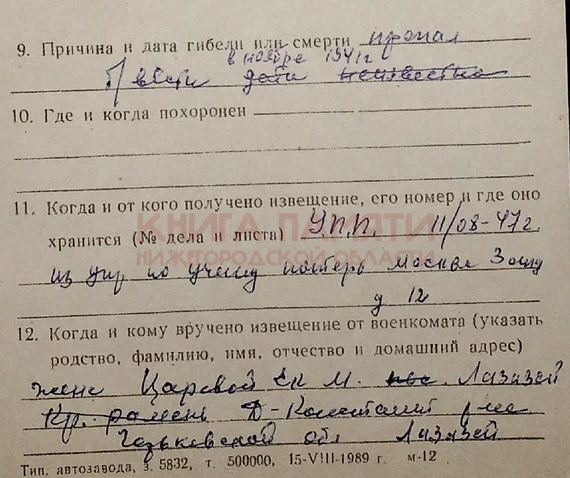 9. Причина и дата гибели или смерти пропал
в ноябре 1941 г
б/вести дата неизвестна
10. Где и когда похоронен
11. Когда и от кого получено извещение, его номер и где оно
хранится (№ дела и листа) У.П.П. 11/08-47 г.
КНИГА ПАМЯТИ
НИЖЕГОРОДСКОЙ ОБЛАСТИ
из упр по учету потерь Москва
д 12
12. Когда и кому вручено извещение от военкомата (указать
родство, фамилию, имя, отчество и домашний адрес)
жене Царевой Ек М. Лазазей
Кр. рамень Д-Константин р-на
Горьковской обл Лазазей
Тип. автозавода, з. 5832, т. 500000, 15-VIII-1989 г. м-12